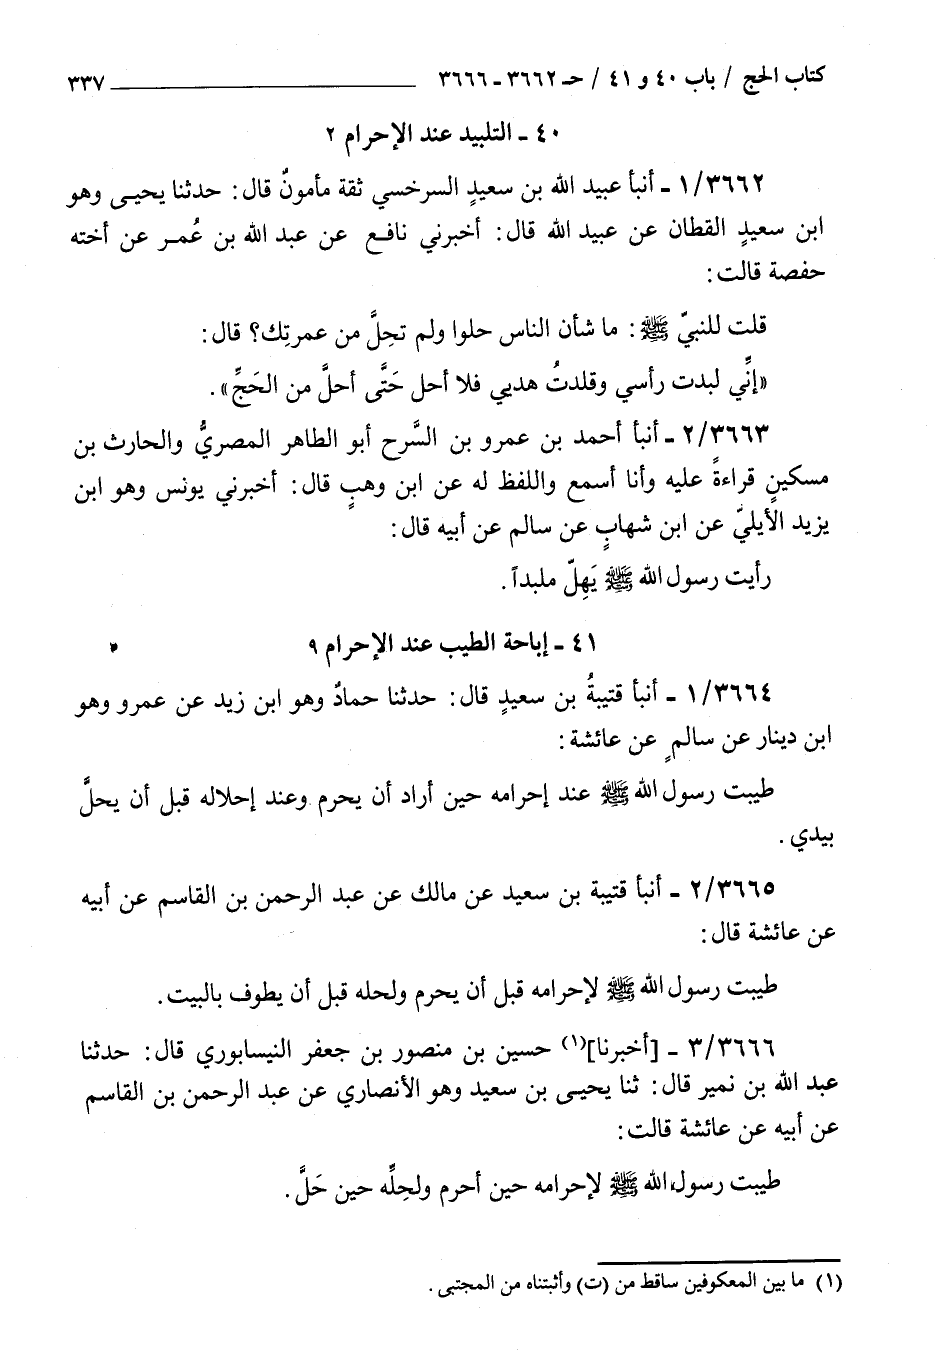 كتاب الحج / باب ٤٠ و ٤١ / حـ ٣٦٦٢ ـ ٣٦٦٦ ٣٣٧
٤٠ ـ التلبيد عند الإحرام ٢
١/٣٦٦٢ ـ أنبأ عبيد الله بن سعيدٍ السرخسي ثقة مأمونٌ قال: حدثنا يحيـى وهو
ابن سعيدٍ القطان عن عبيد الله قال: أخبرني نافع عن عبد الله بن عُمـر عن أخته
حفصة قالت:
قلت للنبيّ ﷺ: ما شأن الناس حلوا ولم تحِلَّ من عمرتِك؟ قال:
«إنِّي لبدت رأسي وقلدتُ هديي فلا أحل حَتَّى أحلَّ من الحَجِّ».
٢/٣٦٦٣ ـ أنبأ أحمد بن عمرو بن السَّرح أبو الطاهر المصريُّ والحارث بن
مسكينٍ قراءةً عليه وأنا أسمع واللفظ له عن ابن وهبٍ قال: أخبرني يونس وهو ابن
يزيد الأيليّ عن ابن شهابٍ عن سالم عن أبيه قال:
رأيت رسول الله ﷺ يَهِلّ ملبداً.
٤١ ـ إباحة الطيب عند الإحرام ٩
١/٣٦٦٤ ـ أنبأ قتيبةُ بن سعيدٍ قال: حدثنا حمادٌ وهو ابن زيد عن عمرو وهو
ابن دينار عن سالمٍ عن عائشة:
طيبت رسول الله ﷺ عند إحرامه حين أراد أن يحرم وعند إحلاله قبل أن يحلَّ
بيدي.
٢/٣٦٦٥ ـ أنبأ قتيبة بن سعيد عن مالك عن عبد الرحمن بن القاسم عن أبيه
عن عائشة قال:
طيبت رسول الله ﷺ لإحرامه قبل أن يحرم ولحله قبل أن يطوف بالبيت.
٣/٣٦٦٦ ـ [أخبرنا](١) حسين بن منصور بن جعفر النيسابوري قال: حدثنا
عبد الله بن نمير قال: ثنا يحيـى بن سعيد وهو الأنصاري عن عبد الرحمن بن القاسم
عن أبيه عن عائشة قالت:
طيبت رسول الله ﷺ لإحرامه حين أحرم ولحِلِّه حين حَلَّ.
(١) ما بين المعكوفين ساقط من (ت) وأثبتناه من المجتبى.